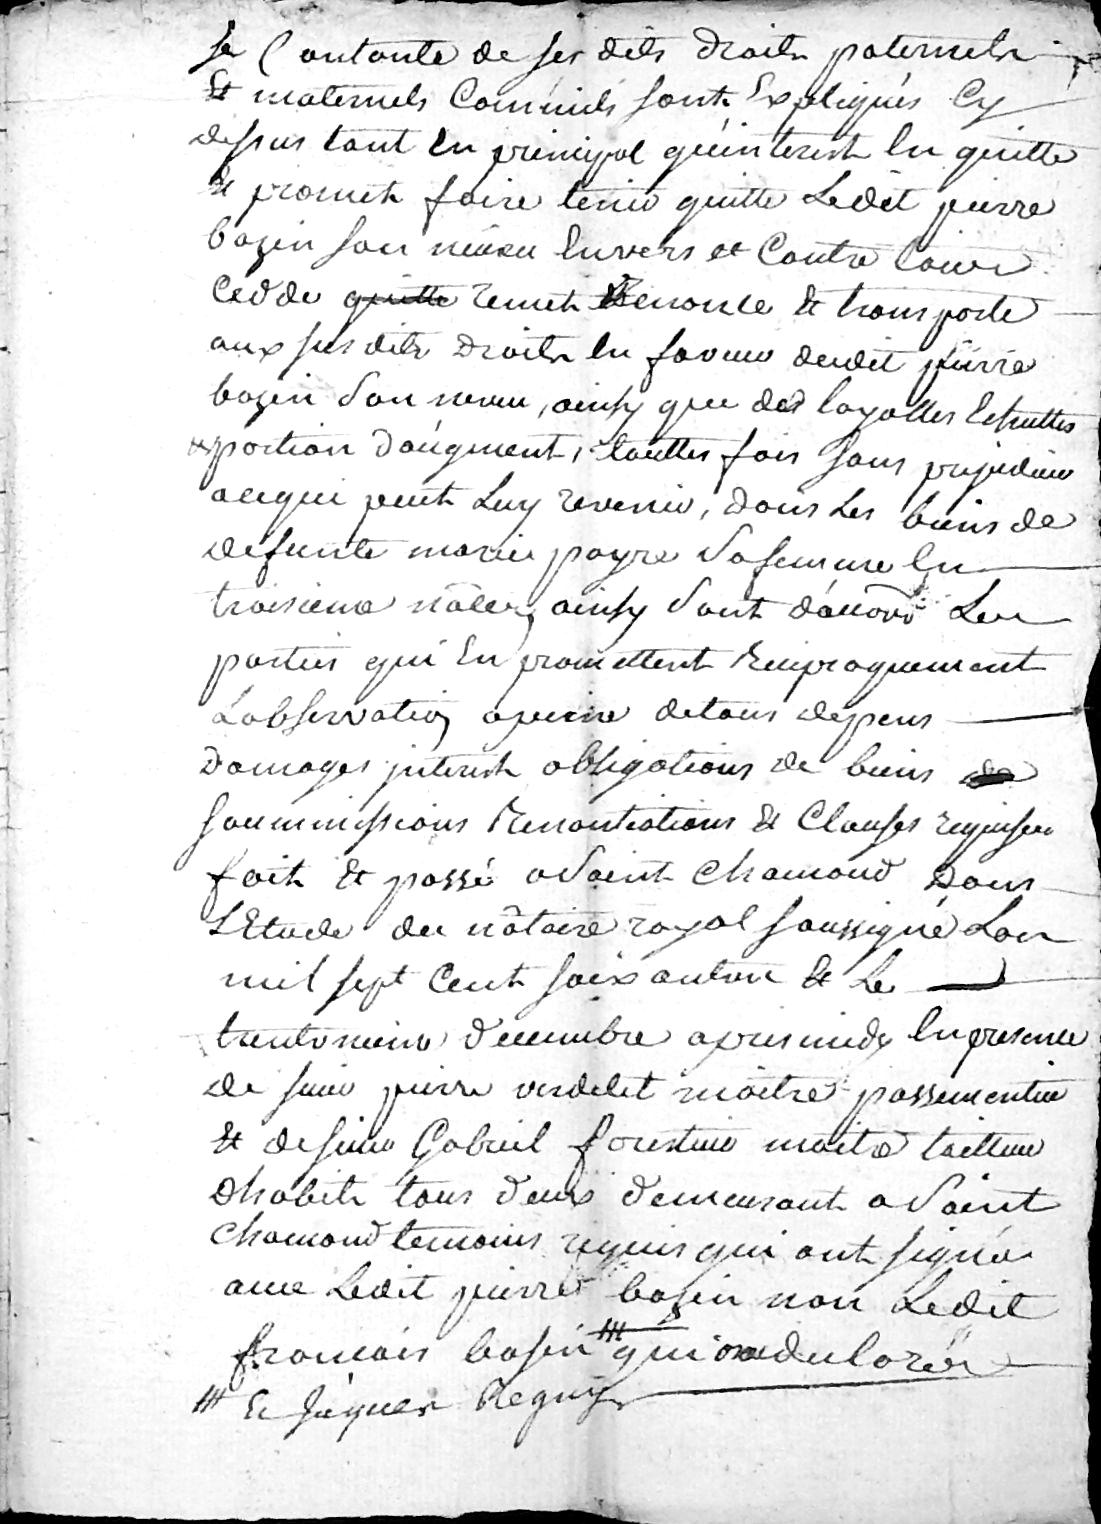 se Contante de ses dits Droits paternels
Et maternels Comme ils sont Expliqués Cy
dessus tant En principal qu'interest En quitte
& promet faire tenir quitte Ledit pierre
bazin son neveu Envers et Contre tous
Cedde quitte remet Renonce & transporte
aux susdits Droits En faveur dudit pierre
bazin son neveu, ainsy que des loyalles Echuttes
& portion d'augment, touttes fois sans prejudice
acequi peut Luy revenir, dans Les biens de
defunte marie payre sa femme En
troisieme nôces, ainsy sont d'accord Les
parties qui En promettent Reciproquement
L'observation a peine de tous depens
Damages interest obligations de biens de
soummissions Renontiations & Clauses requises
fait & passé a Saint Chamond Dans
L'Etude du nôtaire royal soussigné L'an
mil sept Cent soixante & Le
trente decembre apres midy En presence
de sieur pierre verdelet maître passementier
& de sieur Gabriel forestier maitre tailleur
d'habits tous deux demeurant a Saint
Chamond temoins requis qui ont signé
avec Ledit pierre bazin non Ledit
francois basin qui
Et Jâques Reguis